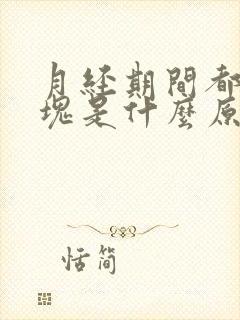 月经期間都
塊是什麼原
恬簡